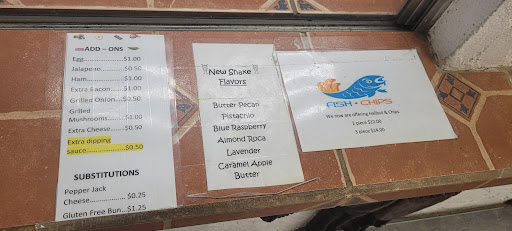 ADD – ONS
Egg....................$1.00
Jalapeno..........$0.50
Ham..................$1.00
Extra Bacon.....$1.00
Grilled Onion...$0.50
Grilled
Mushrooms......$1.00
Extra Cheese.....$0.50
Extra dipping
sauce..................$0.50
SUBSTITUTIONS
Pepper Jack
Cheese..................$0.25
Gluten Free Bun...$1.25
New Shake
Flavors
Butter Pecan
Pistachio
Blue Raspberry
Almond Roca
Lavender
Caramel Apple
Butter
FISH • CHIPS
We now are offering Halibut & Chips
3 piece $14.00